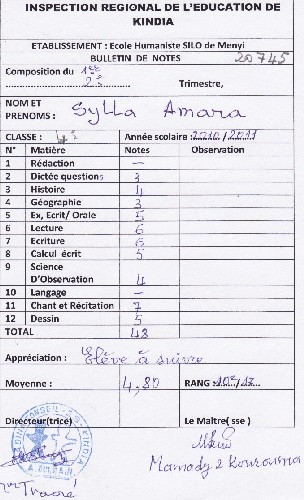 INSPECTION REGIONAL DE L'EDUCATION DE
KINDIA
ETABLISSEMENT : Ecole Humaniste SILO de Menyi
BULLETIN DE NOTES 20745
Composition du 1er
2e Trimestre,
NOM ET
PRENOMS : Sylla Amara
CLASSE : 4e Année scolaire : 2010 / 2011
N° Matière Notes Observation
1 Rédaction —
2 Dictée questions 3
3 Histoire 4
4 Géographie 3
5 Ex, Ecrit/ Orale 5
6 Lecture 6
7 Ecriture 6
8 Calcul écrit 5
9 Science
D'Observation 4
10 Langage —
11 Chant et Récitation 7
12 Dessin 5
TOTAL 48
Appréciation : Elève à suivre
Moyenne : 4,80 RANG : 10e/17
Directeur(trice) Le Maitre( sse )
Mamady 2 Kourouma
Traoré